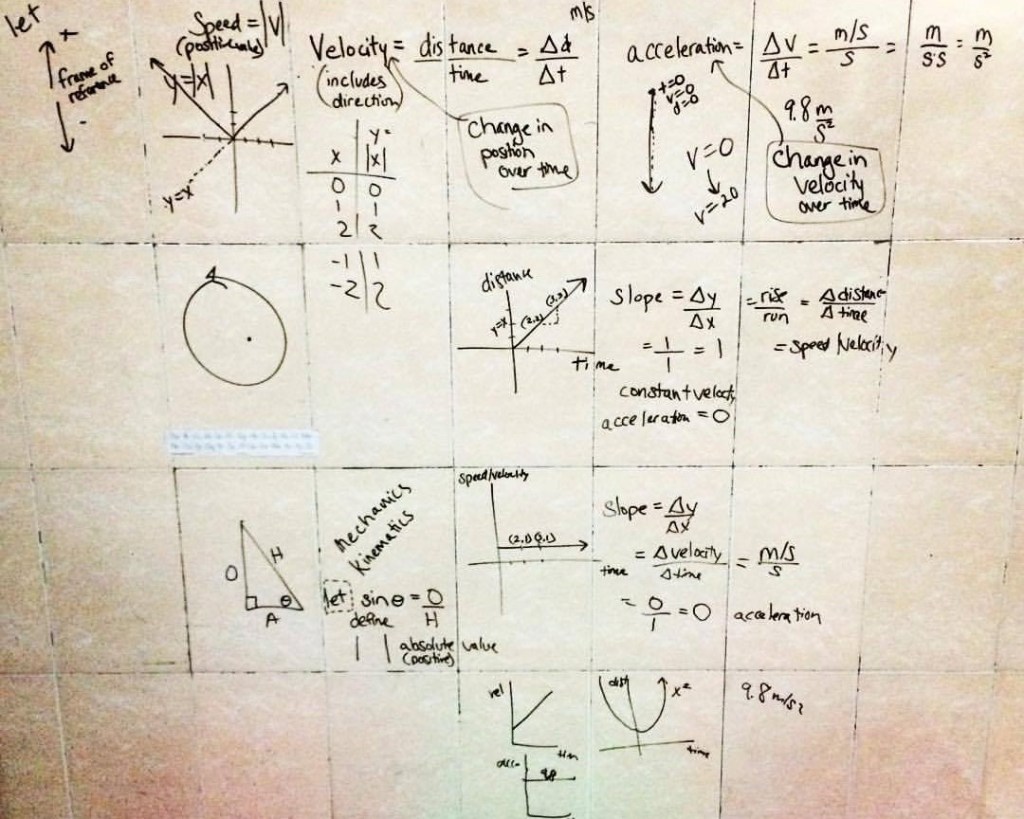 let
+
frame of
reference
-
Speed = |V|
(positive value)
y=|x|
y=x
Velocity = distance/time = Δd/Δt
m/s
(includes
direction)
x | y=|x|
0 | 0
1 | 1
2 | 2
-1 | 1
-2 | 2
Change in
position
over time
acceleration = Δv/Δt = m/s/s = m/s·s = m/s²
t=0
v=0
d=0
9.8 m/s²
V=0
V=20
Change in
velocity
over time
distance
y=x
(2,2)
(3,3)
time
Slope = Δy/Δx = rise/run = Δdistance/Δtime
= 1/1 = 1
= speed/velocity
constant velocity
acceleration = 0
O
H
A
θ
Mechanics
Kinematics
let sinθ = O/H
define
| | absolute value
(positive)
speed/velocity
(2,1) (3,1)
time
Slope = Δy/Δx
= Δvelocity/Δtime = m/s/s
= 0/1 = 0 acceleration
vel
tim
dist
x²
time
9.8 m/s²
acc
9.8